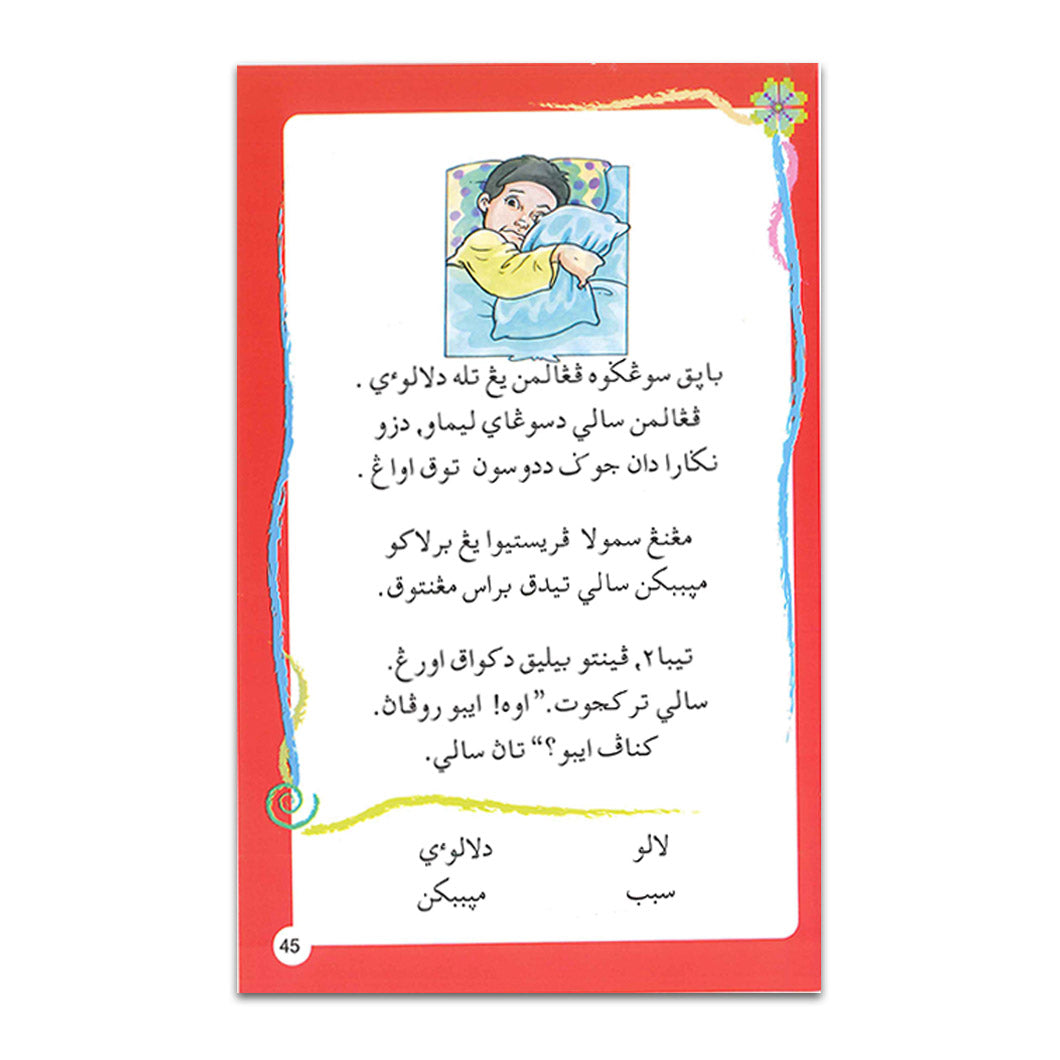 باڽق سوڠݢوه ڤڠالمن يڠ تله دلالوءي .
ڤڠالمن سالي دسوڠاي ليماو, دزو
نݢارا دان جوݢ ددوسون توق اواڠ .
مڠنڠ سمولا ڤريستيوا يڠ برلاکو
مڽببکن سالي تيدق براس مڠنتوق.
تيبا٢, ڤينتو بيليق دکواق اورڠ.
سالي ترکجوت.” اوه! ايبو روڤاڽ.
کناڤ ايبو؟“ تاڽ سالي.
لالو دلالوءي
سبب مڽببکن
45